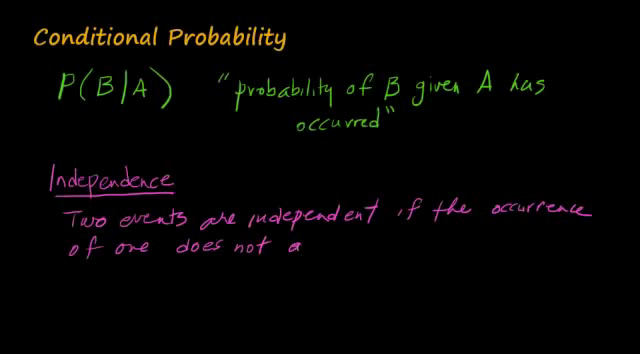 Conditional Probability
P(B/A) "probability of B given A has
occurred"
Independence
Two events are independent if the occurrence
of one does not a